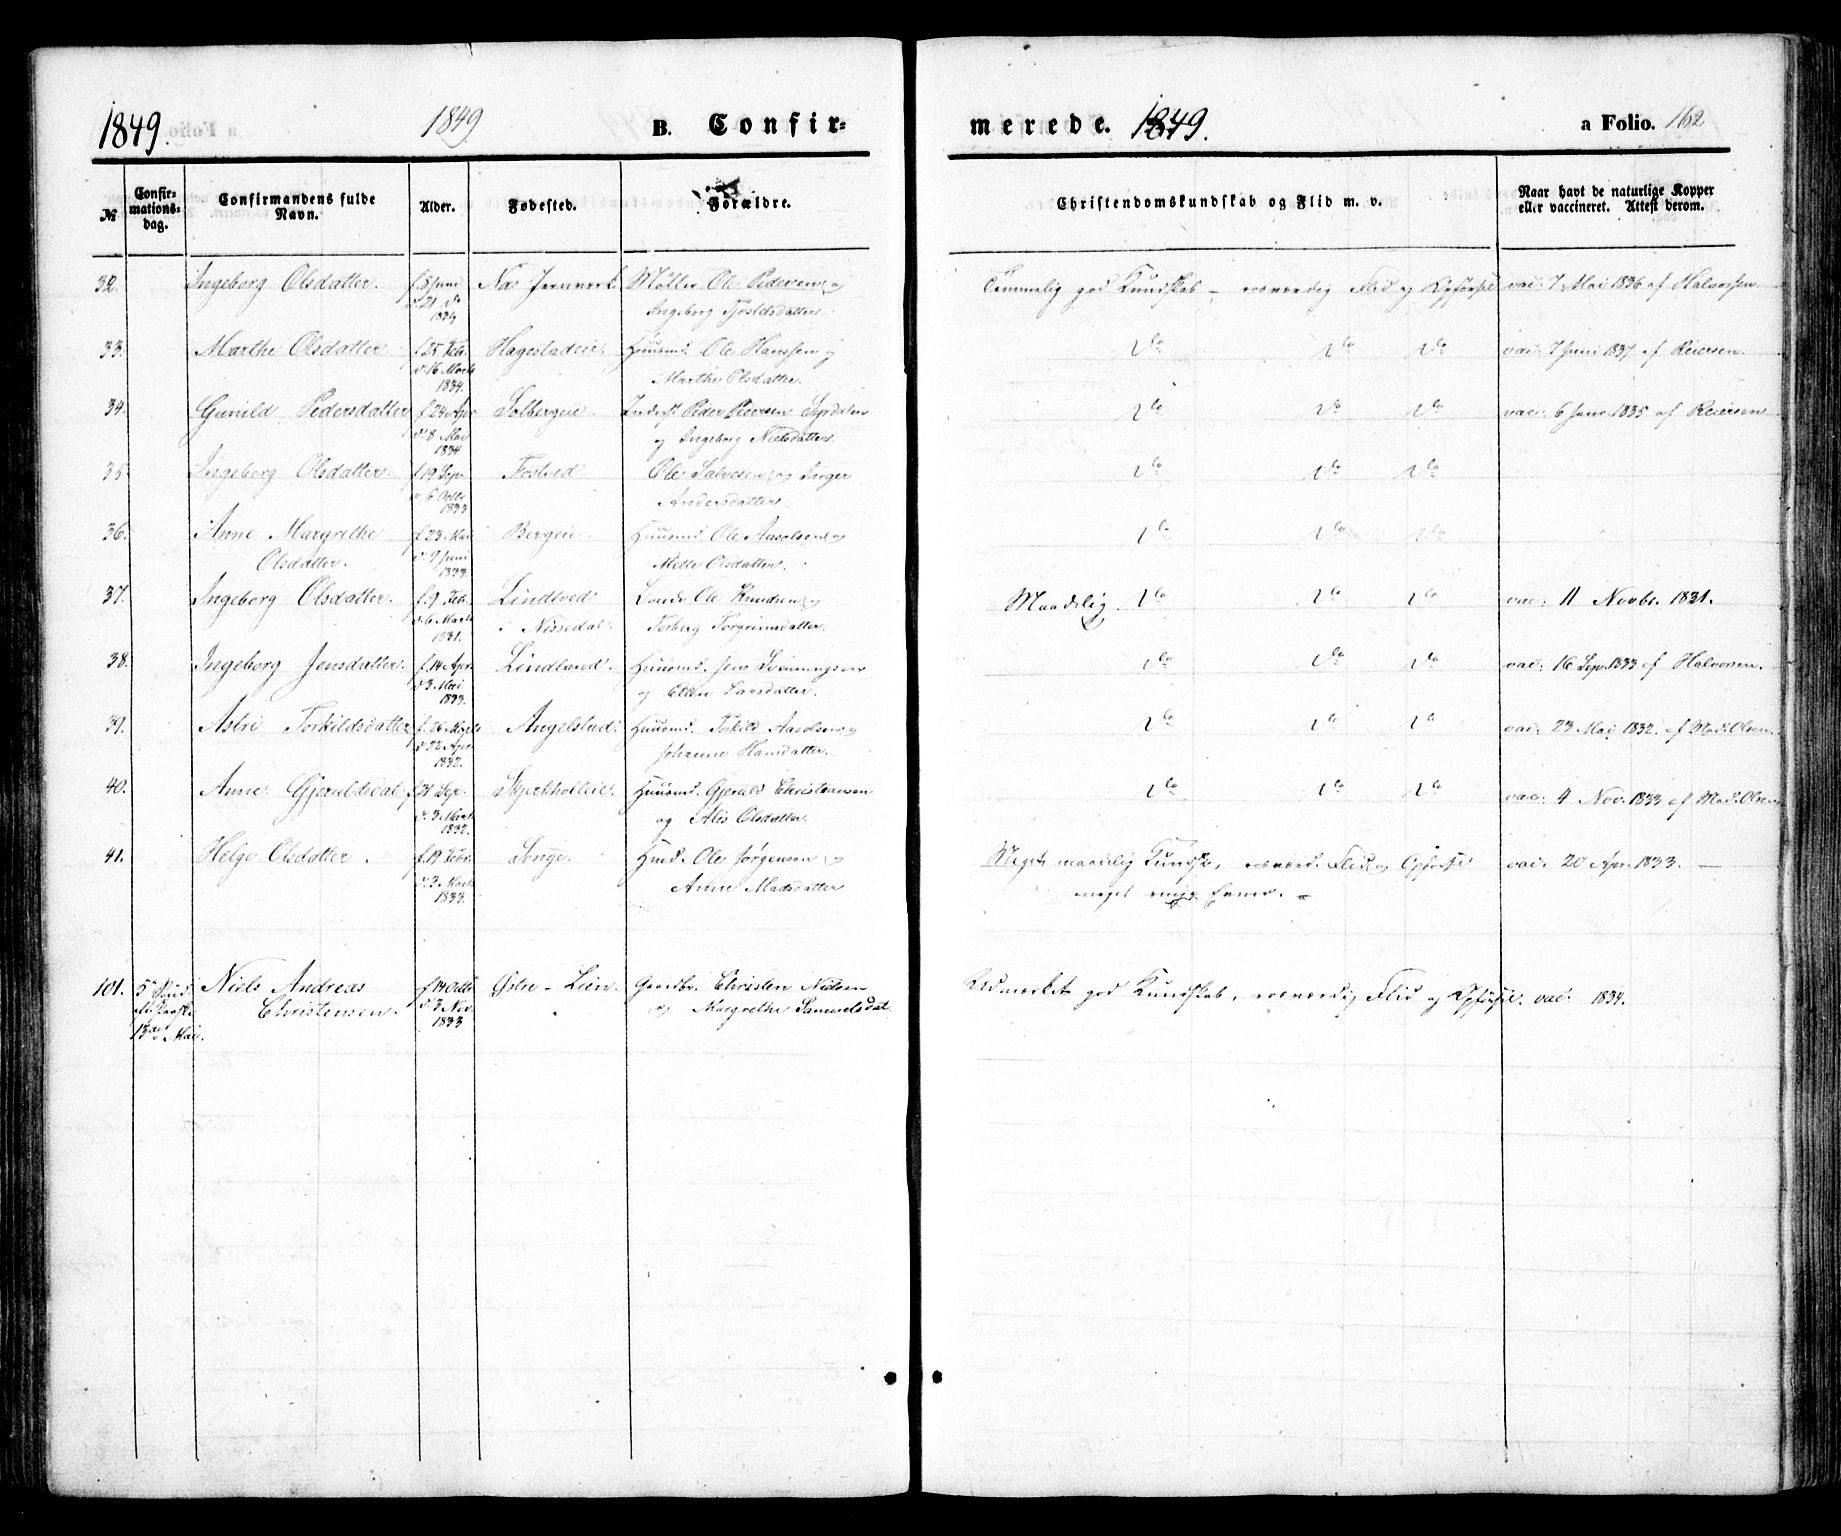 1849. 1849 B. Confir- merede. 1849. a Folio. 162
№ Confir-mations-dag. Confirmandens fulde Navn. Alder. Fødested. Forældre. Christendomskundskab og Flid m. v. Naar havt de naturlige Kopper eller vaccineret. Attest derom.
32. Ingeborg Olsdatter. f. 8 Juni Næs Jernverk Møller Ole Pedersen og Temmelig god Kundskab – roesværdig Flid og Opførsel vac: 7 Mai 1836 af Halvorsen
d. 21 do Ingeborg Tjostelsdatter
1834
33. Marthe Olsdatter f. 25 Feb. Hagestadeie Huusmd. Ole Hanssen og do do do vac: 7 Juni 1837 af Reiersen.
d. 16 Marts Marthe Olsdatter.
1834.
34. Gunild Pedersdatter f. 24 Apr Solbergeie. Inderst Peder Peersen Syrdalen do do do vac: 6 Juni 1835 af Reiersen
d. 8 Mai og Ingeborg Nielsdatter
1834
35 Ingeborg Olsdatter. f. 19 Sep. Fosteved Ole Salvesen og Inger do do do
d. 6 Octb Andersdatter
1833
36. Anne Margrethe f. 23 Mai Bergeie. Huusmd Ole Aasolsen og do do do
Olsdatter. d. 9 Juni Mette Olsdatter.
1833.
37. Ingeborg Olsdatter. f. 9 Feb. Lindtved Ole Knudsen og Maadelig do do do vac: 11 Novbr. 1831.
d. 6 Marts i Nissedal. Torberg Torgrimsdatter.
1831.
38. Ingeborg Jensdatter. f. 14 Apr. Lindland. Huusmd. Jens Svenningsen do do do vac: 16 Sep. 1833 af Halvorsen.
d. 3 Mai og Ellen Larsdatter.
1833.
39. Astri Torkildsdatter f. 26 Marts Angelstad. Huusmd. Torkild Aasolsen og do do do vac: 23 Mai 1832. af Mad: Olsen.
d. 22 Apr. Johanne Hansdatter.
1832.
40. Anne Gjeruldsdat. f. 21 Sep. Skjerkholteie. Huusmd. Gjeruld Christensen do do do vac: 4 Nov. 1833 af Mad: Olsen
d. 3 og Alis Olsdatter.
1832.
41. Helge Olsdatter. f. 19 Febr. Songe. Hmd. Ole Jørgensen og Meget maadelig Kundsk, roesværd. Flid og Opførsel vac: 20 Apr. 1833. —
d. 3 Marts Anne Madsdatter meget ringe Evner. –
1833.
101. 5 Niels Andreas f. 14 Octb Østre-Lien Gaardbr. Christen Nielsen Udmærket god Kundskab, roesværdig Flid og Opførsel. vac. 1834.
Christensen. d. 3 Nov. og Margrethe Samuelsdat.
13de Mai. 1833